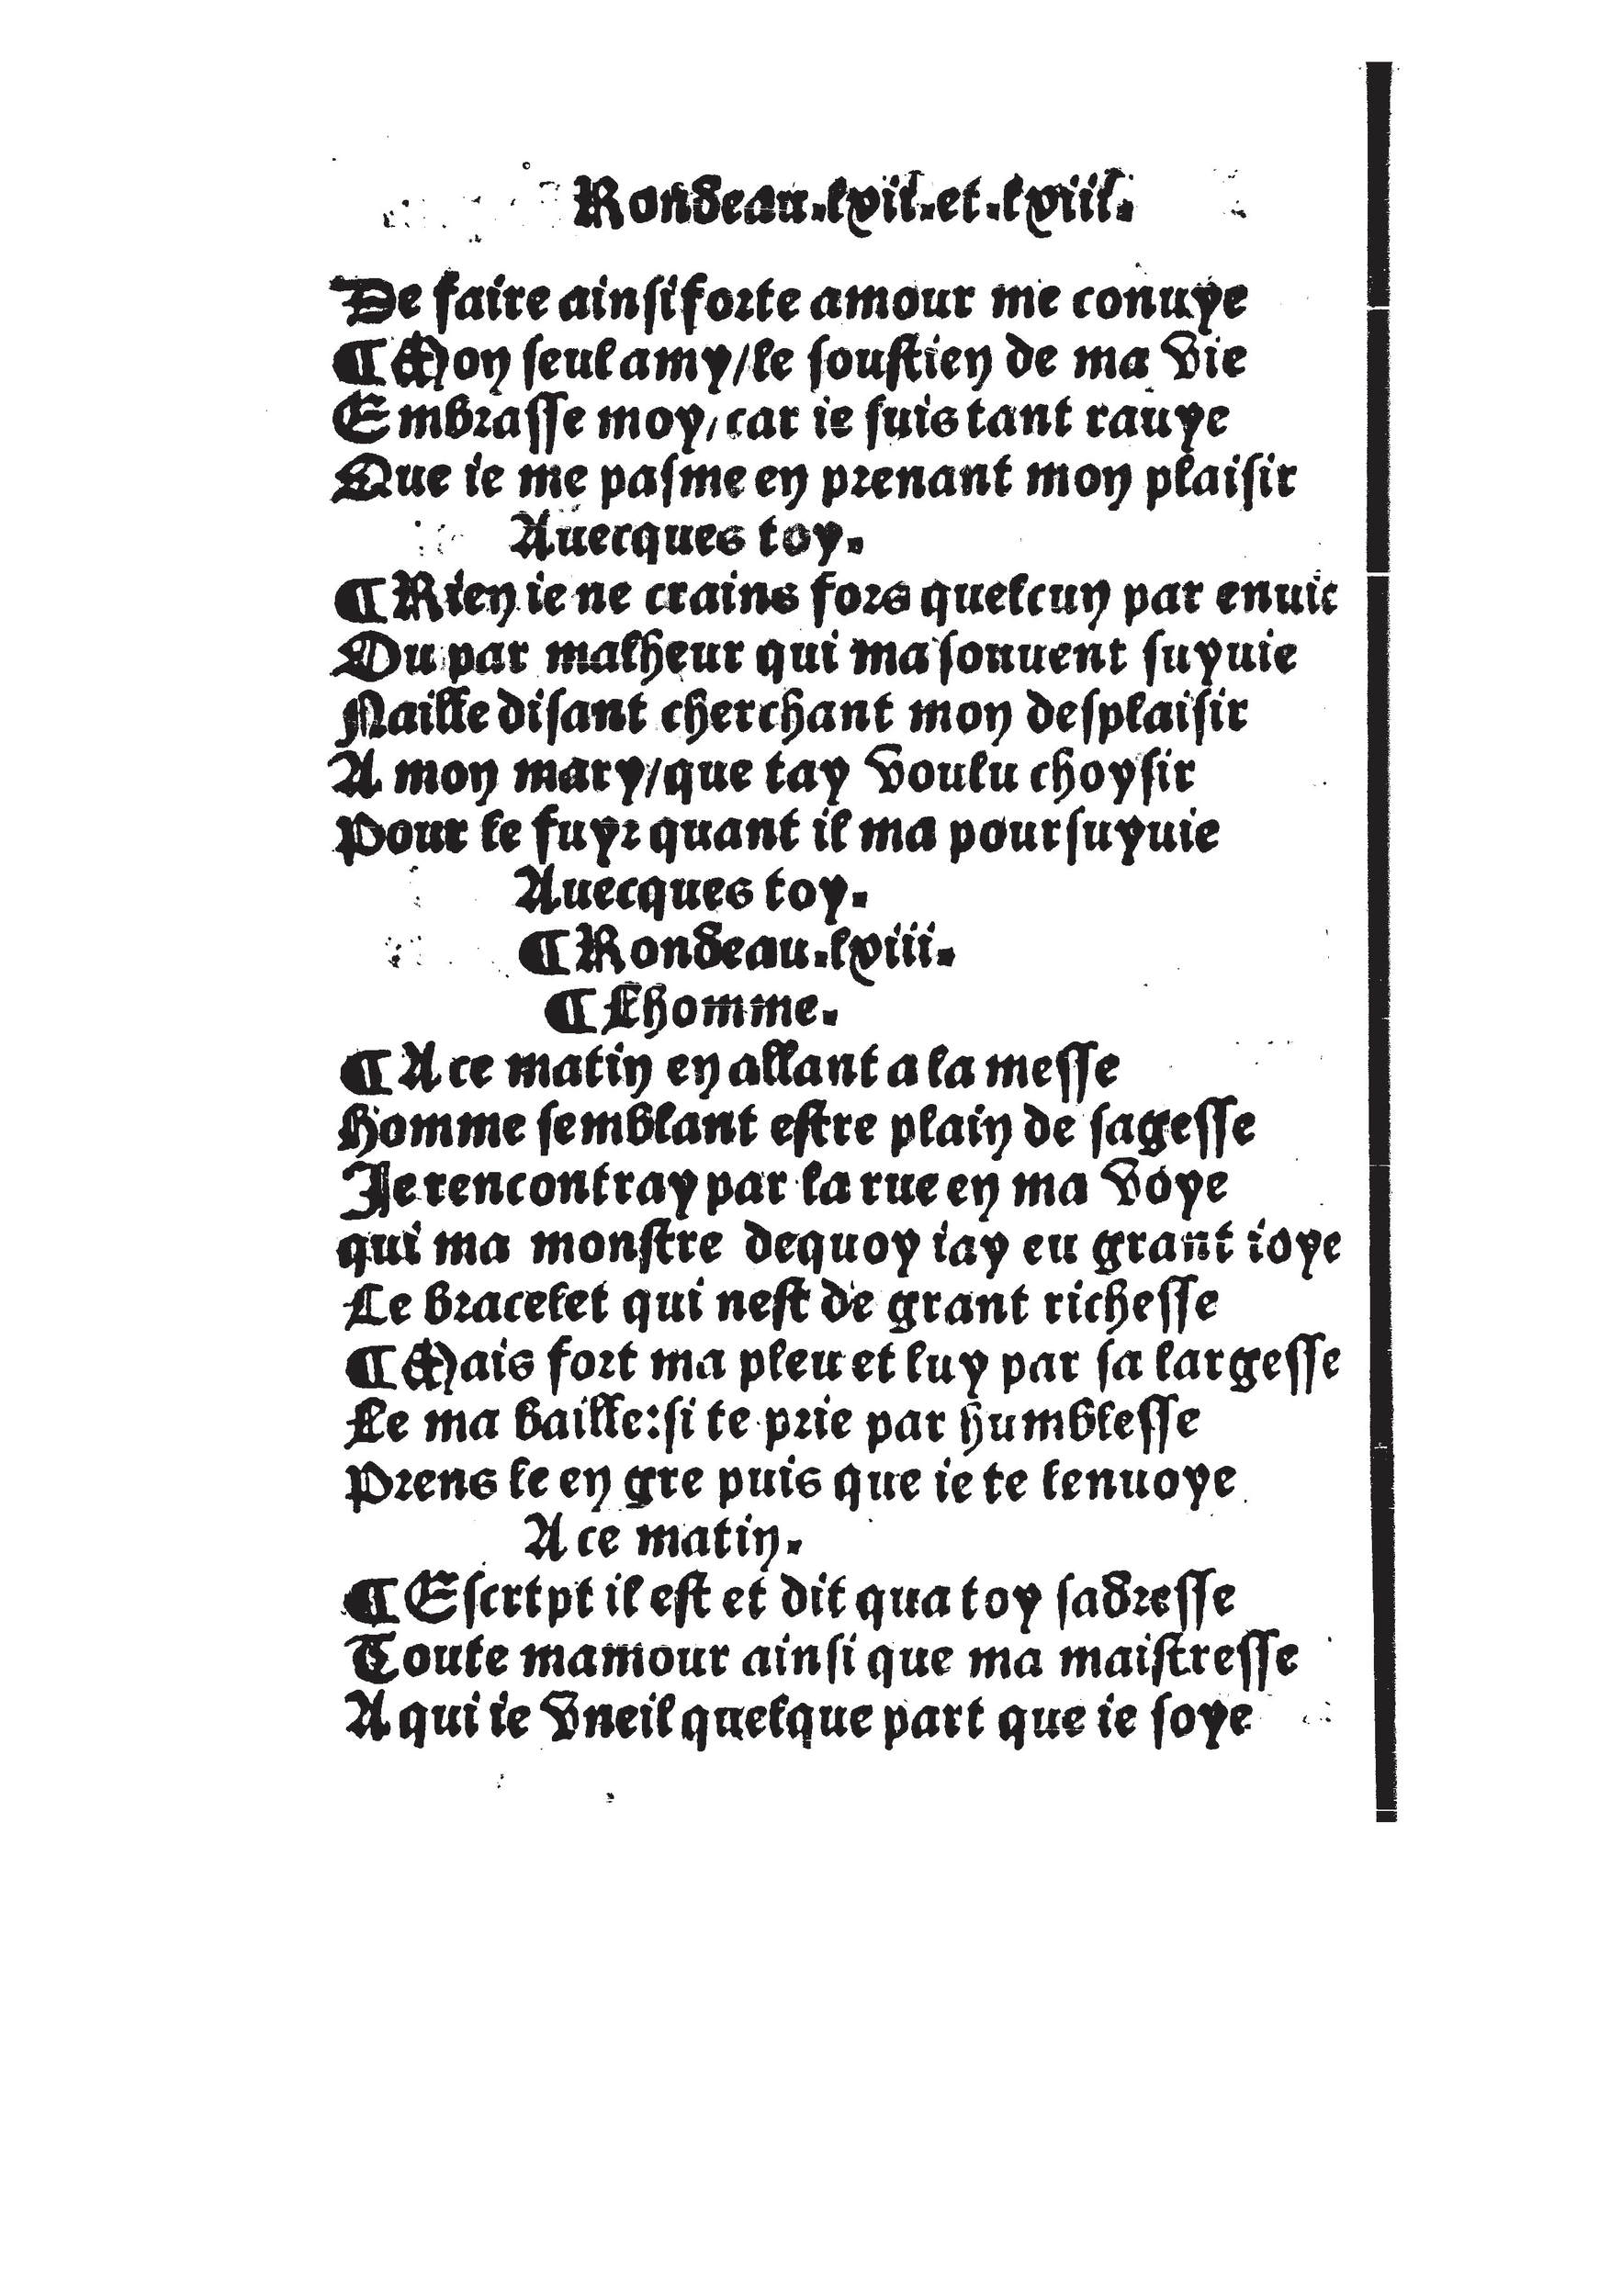 Rondeau.lvii.et.lviii.
De faire ainsi forte amour me conuye
¶ Mon seul amy/le soustien de ma vie
Embrasse moy/car ie suis tant rauye
Que ie me pasme en prenant mon plaisir
Auecques toy.
¶ Rien ie ne crains fors quelcun par enuie
Ou par malheur qui ma souuent suyuie
Naille disant cherchant mon desplaisir
A mon mary/que tay voulu choysir
Pour le fuyr quant il ma poursuyuie
Auecques toy.
¶ Rondeau.lviii.
¶ Lhomme.
¶ A ce matin en allant a la messe
Homme semblant estre plain de sagesse
Ie rencontray par la rue en ma voye
qui ma monstre dequoy iay eu grant ioye
Le bracelet qui nest de grant richesse
¶ Mais fort ma pleu et luy par sa largesse
Le ma baille:si te prie par humblesse
Prens le en gre puis que ie te lenuoye
A ce matin.
¶ Escrtpt il est et dit qua toy sadresse
Toute mamour ainsi que ma maistresse
A qui ie vneil quelque part que ie soye